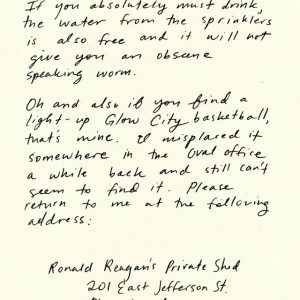 If you absolutely must drink,
the water from the sprinklers
is also free and it will not
give you an obscene
speaking worm.
Oh and also if you find a
light-up Glow City basketball,
that's mine. I misplaced it
somewhere in the Oval office
a while back and still can't
seem to find it. Please
return to me at the following
address:
Ronald Reagan's Private Shed
201 East Jefferson St.